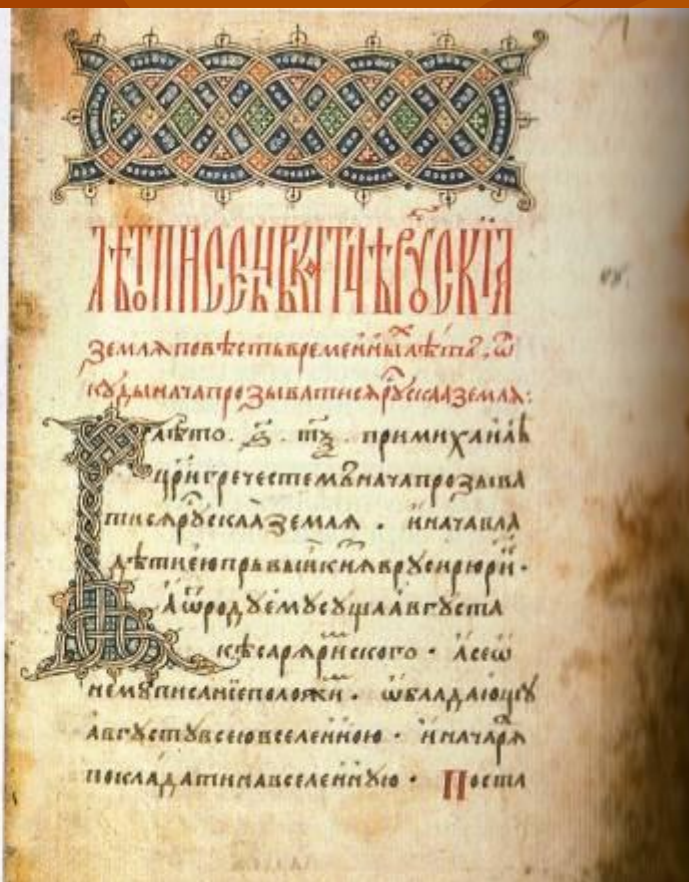 лѣтописец вкратцѣ рускіѧ
землѧ повѣсть временны лѣта. ѿ
куды нача прозыватисѧ рускаа землѧ:
лѣто. ҂ѕ. тѯ. при михаилѣ
цри гречестемъ нача прозыва
тисѧ рускаа землѧ. и нача вла
дѣти ею прьвыи кнѧ в руси рюри.
а ѿ роду ему суща августа
кесарѧ римского. а се ѿ
нему писаніе положи. ѡбладающу
августу всею вселенною. и нача рѧ
покладати на вселенную. Поста